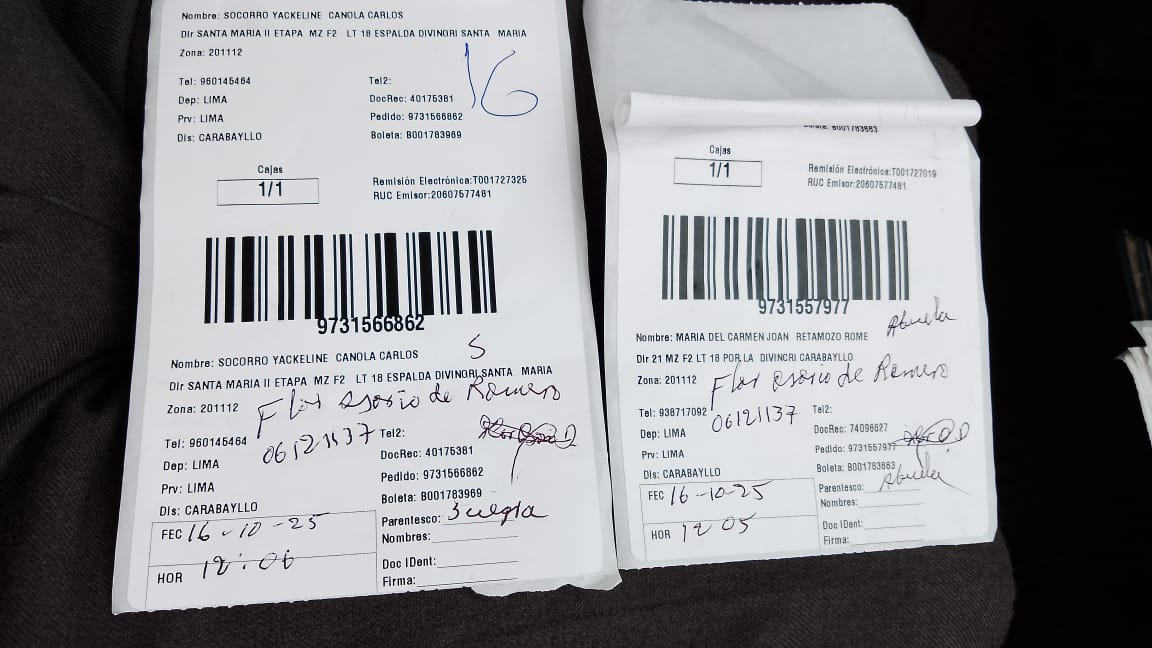 Nombre: SOCORRO YACKELINE CANOLA CARLOS
Dir SANTA MARIA II ETAPA MZ F2 LT 18 ESPALDA DIVINORI SANTA MARIA
Zona: 201112
16
Tel: 960145464 Tel2:
Dep: LIMA DocRec: 40175381
Prv: LIMA Pedido: 9731566862
Dis: CARABAYLLO Boleta: B001783969
Cajas
1/1
Remisión Electrónica:T001727325
RUC Emisor:20607577481
9731566862
Nombre: SOCORRO YACKELINE CANOLA CARLOS
S
Dir SANTA MARIA II ETAPA MZ F2 LT 18 ESPALDA DIVINORI SANTA MARIA
Zona: 201112
Flor osorio de Romero
06121137
Tel: 960145464 Tel2:
Dep: LIMA DocRec: 40175381
Prv: LIMA Pedido: 9731566862
Dis: CARABAYLLO Boleta: B001783969
FEC 16-10-25 Parentesco: Suegra
Nombres:
HOR 12:06 Doc IDent:
Firma:
Boleta: B001783663
Cajas
1/1
Remisión Electrónica:T001727019
RUC Emisor:20607577481
9731557977
Nombre: MARIA DEL CARMEN JOAN RETAMOZO ROME
Abuela
Dir 21 MZ F2 LT 18 POR LA DIVINCRI CARABAYLLO
Zona: 201112
Flor osorio de Romero
06121137
Tel: 938717092 Tel2:
Dep: LIMA DocRec: 74096627
Prv: LIMA Pedido: 9731557977
Dis: CARABAYLLO Boleta: B001783663
FEC 16-10-25 Parentesco: Abuela
Nombres:
HOR 12 05 Doc IDent:
Firma: